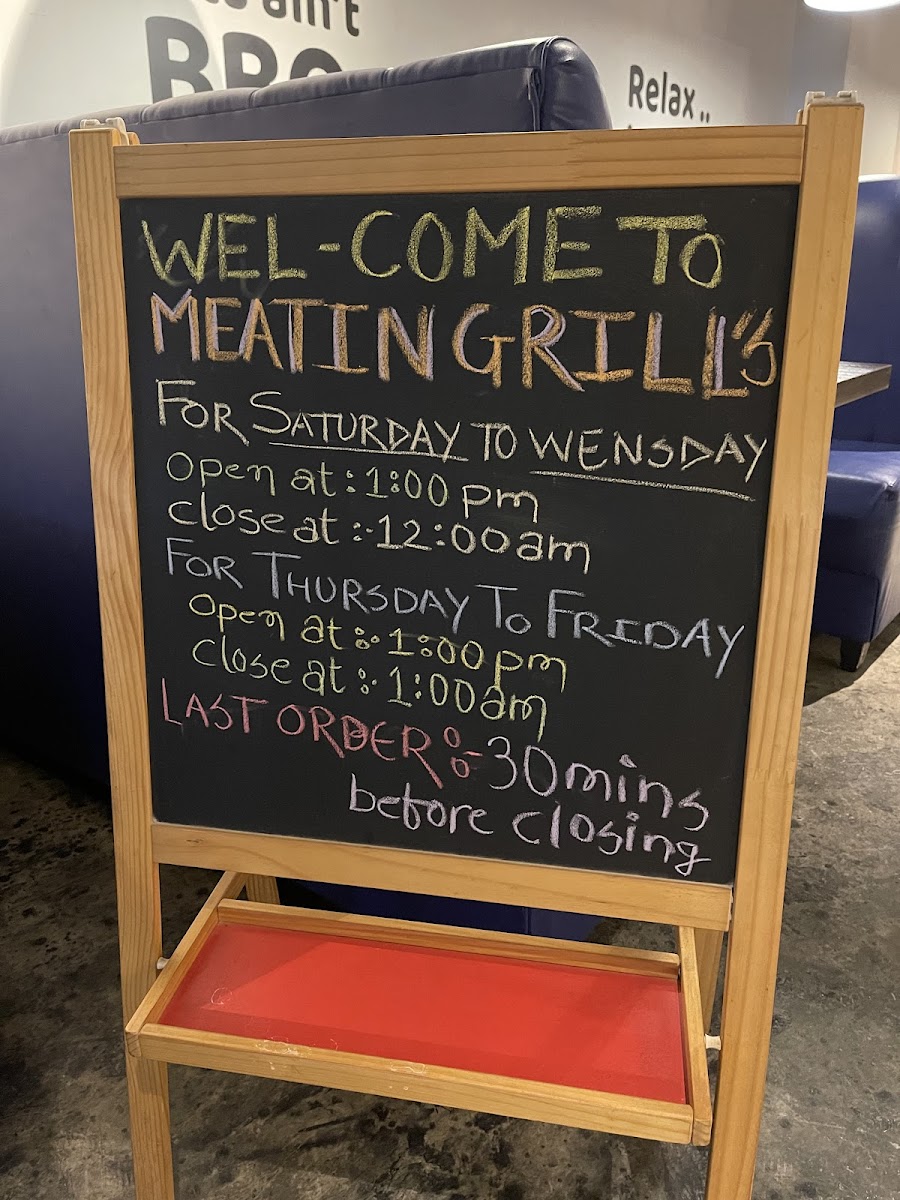 ain't
Relax ..
WEL-COME TO
MEATINGRILL'S
FOR SATURDAY TO WENSDAY
open at : 1:00 pm
close at :- 12:00am
FOR THURSDAY TO FRIDAY
open at :- 1:00 pm
close at :- 1:00am
LAST ORDER :- 30mins
before closing